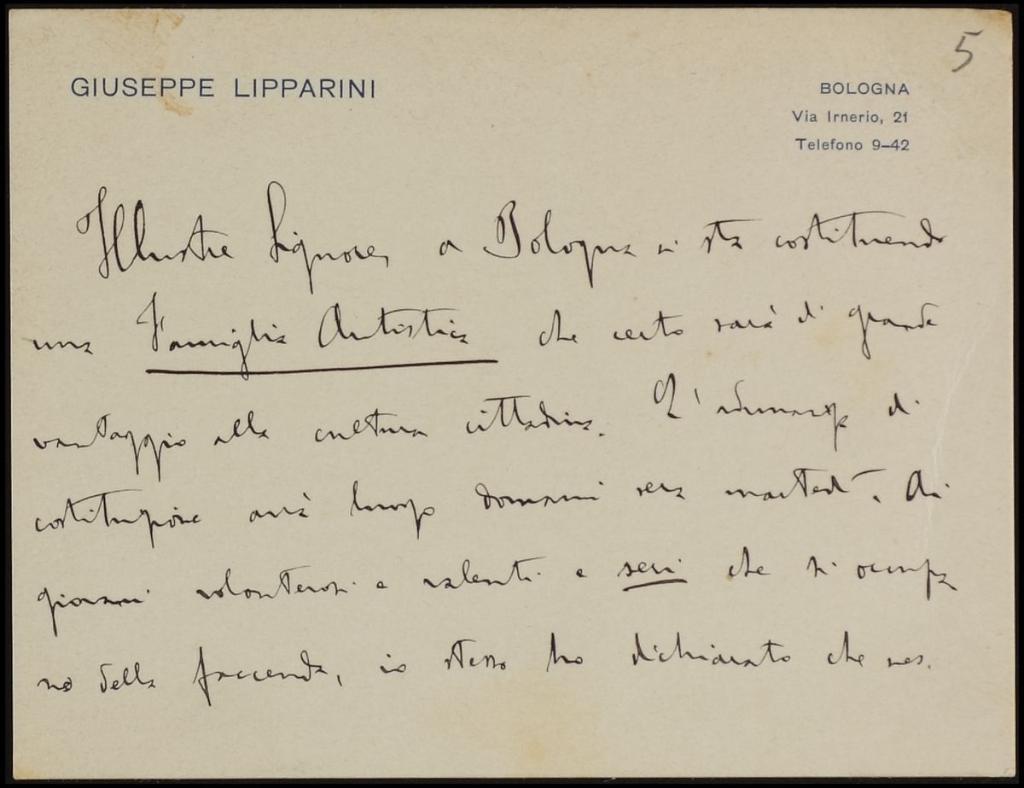 5
GIUSEPPE LIPPARINI
BOLOGNA
Via Irnerio, 21
Telefono 9–42
Illustre Signore, a Bologna si sta costituendo
una Famiglia Artistica che certo sarà di grande
vantaggio alla cultura cittadina. L'adunanza di
costituzione avrà luogo domani sera martedì. Ai
giovani volonterosi e valenti e seri che si occupa
no della faccenda, io stesso ho dichiarato che